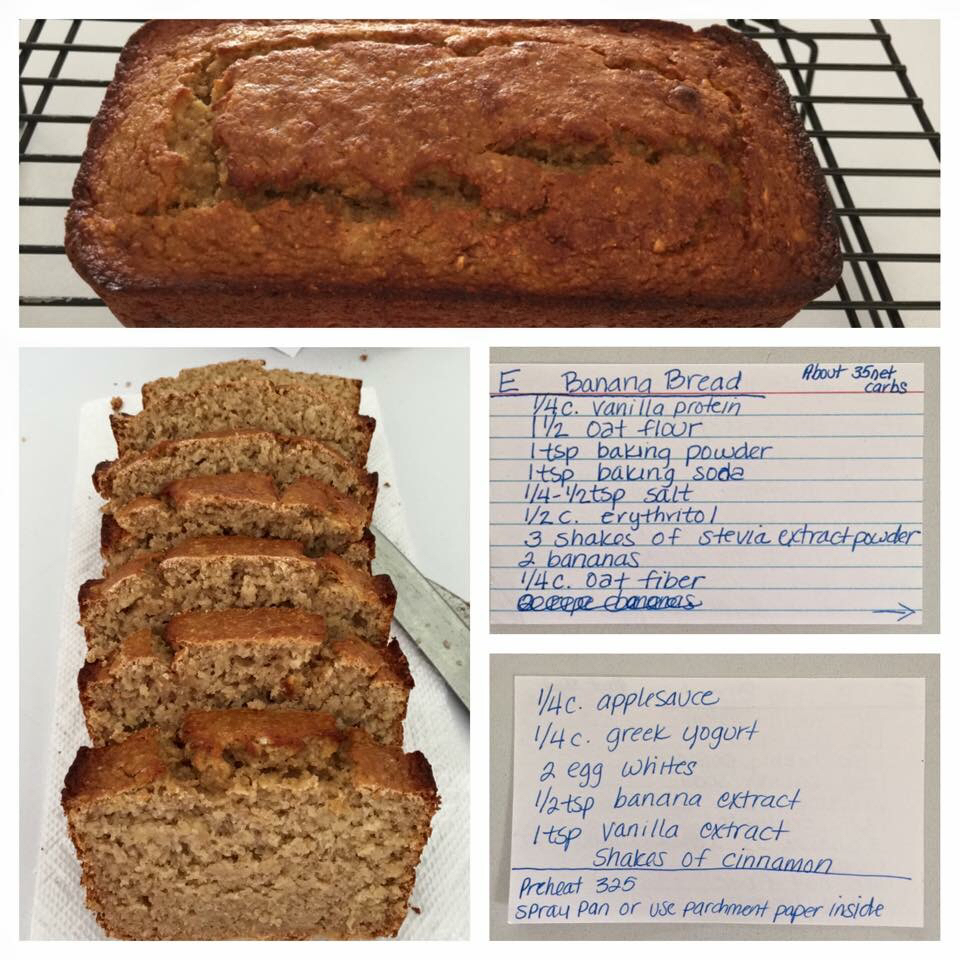 E Banana Bread About 35net carbs
1/4c. vanilla protein
1 1/2 oat flour
1 tsp baking powder
1 tsp baking soda
1/4-1/2tsp salt
1/2 c. erythritol
3 shakes of stevia extract powder
2 bananas
1/4c. oat fiber
→
1/4c. applesauce
1/4c. greek yogurt
2 egg whites
1/2tsp banana extract
1tsp vanilla extract
Shakes of cinnamon
Preheat 325
spray pan or use parchment paper inside